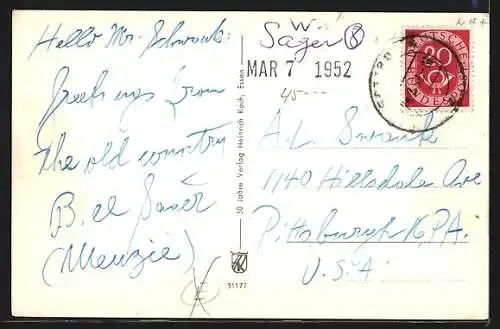 Hello Mr. Schwank:
Greetings from
the old country
B. el Sauer
(Menzie)
50 Jahre Verlag Heinrich Koch, Essen
51177
W
Sager
MAR 7 1952
45---
DEUTSCHE
BUNDESPOST
A. L. Swank
1140 Hillsdale Ave
Pittsburgh K. PA.
U.S.A